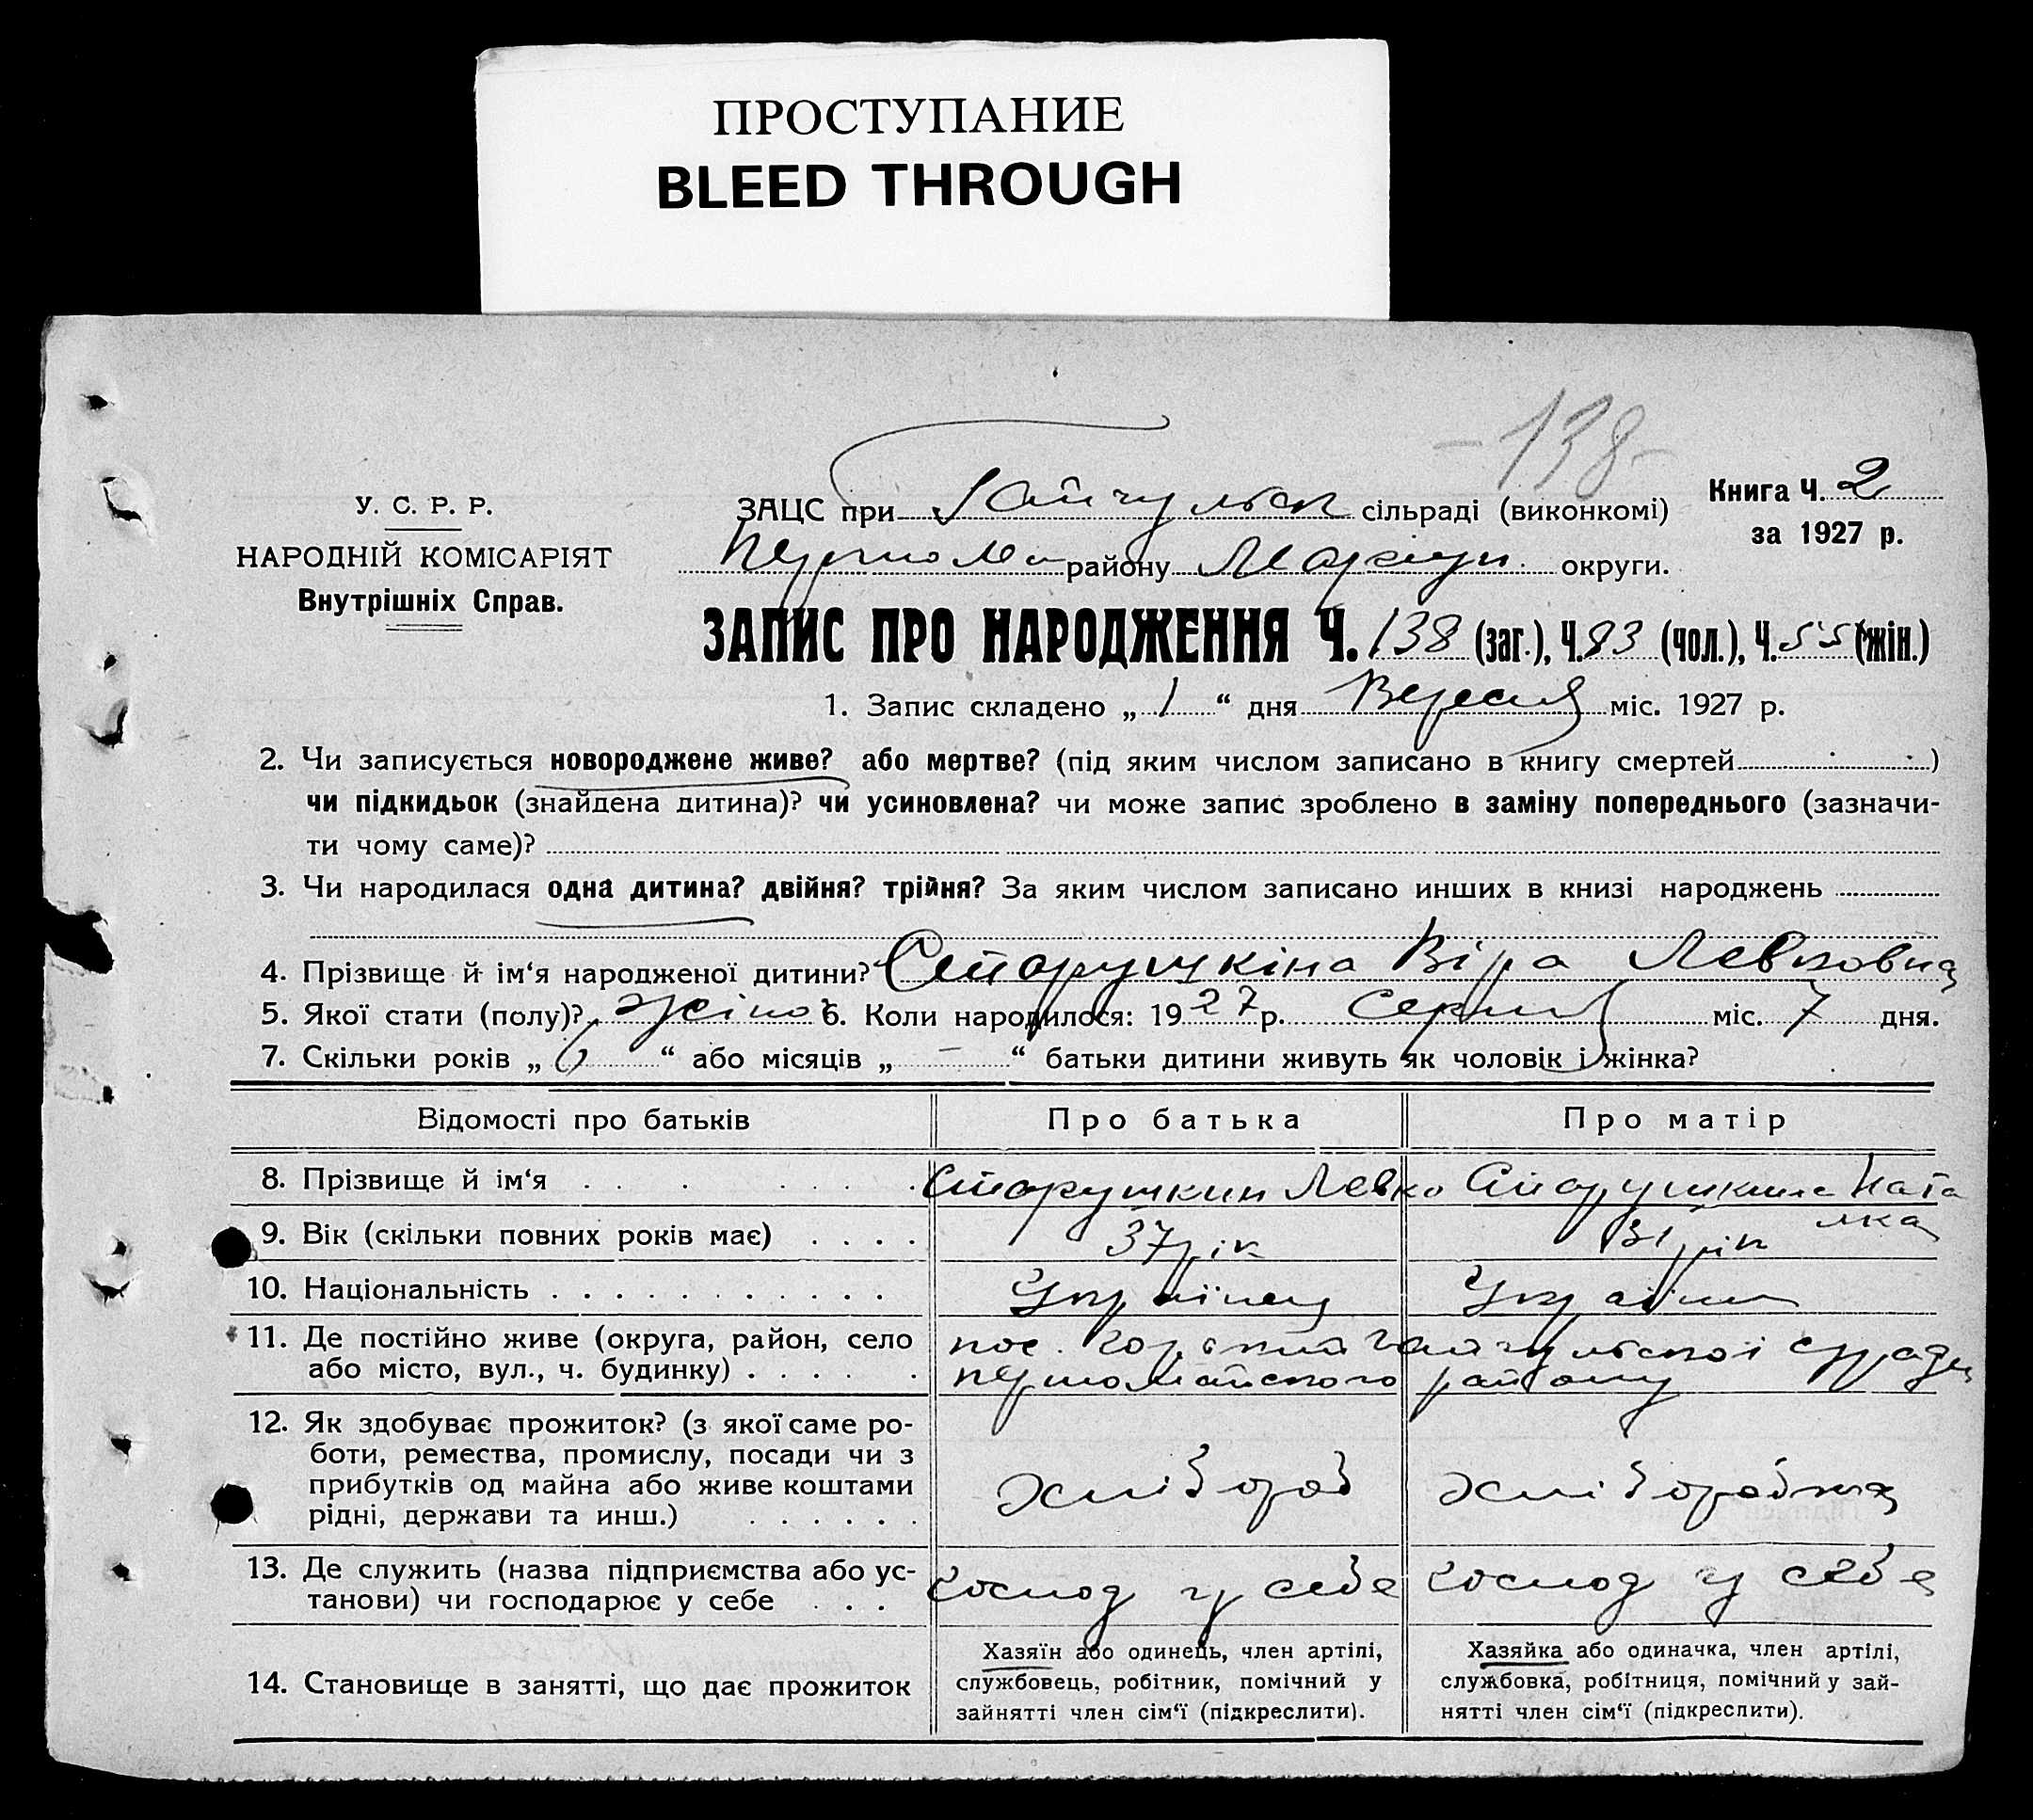 ПРОСТУПАНИЕ
BLEED THROUGH
-138-
У. С. Р. Р.
НАРОДНІЙ КОМІСАРІЯТ
Внутрішніх Справ.
Книга Ч. 2
за 1927 р.
ЗАЦС при Гайчульск сільраді (виконкомі)
Першома району Маріуп. округи.
ЗАПИС ПРО НАРОДЖЕННЯ Ч. 138 (заг.), Ч. 83 (чол.), Ч. 55 (жін.)
1. Запис складено „ 1 “ дня Вересня міс. 1927 р.
2. Чи записується новороджене живе? або мертве? (під яким числом записано в книгу смертей )
чи підкидьок (знайдена дитина)? чи усиновлена? чи може запис зроблено в заміну попереднього (зазначи-
ти чому саме)?
3. Чи народилася одна дитина? двійня? трійня? За яким числом записано инших в книзі народжень
4. Прізвище й ім‘я народженої дитини? Старушкіна Віра Левковна
5. Якої стати (полу)? жіноч 6. Коли народилося: 1927 р. Серпня міс. 7 дня.
7. Скільки років „ 6 “ або місяців „ – “ батьки дитини живуть як чоловік і жінка?
Відомості про батьків Про батька Про матір
8. Прізвище й ім‘я Старушкин Левко Старушкина Ната
лка
9. Вік (скільки повних років має) 37 рік 31 рік
10. Національність Українец Українка
11. Де постійно живе (округа, район, село пос. Гайчульської сради
або місто, вул., ч. будинку) першомайского району
12. Як здобуває прожиток? (з якої саме ро-
боти, ремества, промислу, посади чи з
прибутків од майна або живе коштами
рідні, держави та инш.) хлібороб хліборобка
13. Де служить (назва підприємства або ус-
танови) чи господарює у себе господ у себе господ у себе
14. Становище в занятті, що дає прожиток
Хазяїн або одинець, член артілі,
службовець, робітник, помічний у
зайнятті член сім‘ї (підкреслити).
Хазяйка або одиначка, член артілі,
службовка, робітниця, помічний у зай-
нятті член сім‘ї (підкреслити).